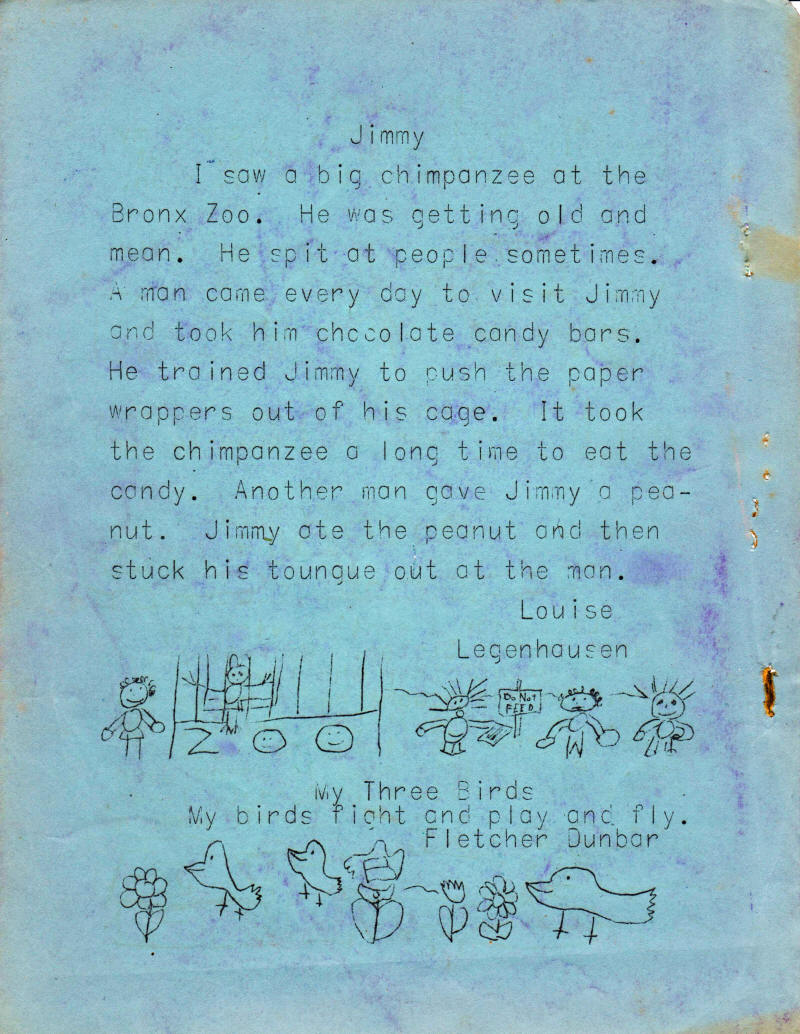 Jimmy
I saw a big chimpanzee at the
Bronx Zoo. He was getting old and
mean. He spit at people sometimes.
A man came every day to visit Jimmy
and took him chocolate candy bars.
He trained Jimmy to push the paper
wrappers out of his cage. It took
the chimpanzee a long time to eat the
candy. Another man gave Jimmy a pea-
nut. Jimmy ate the peanut and then
stuck his toungue out at the man.
Louise
Legenhausen
Do Not
FEED
ZOO
My Three Birds
My birds fight and play and fly.
Fletcher Dunbar